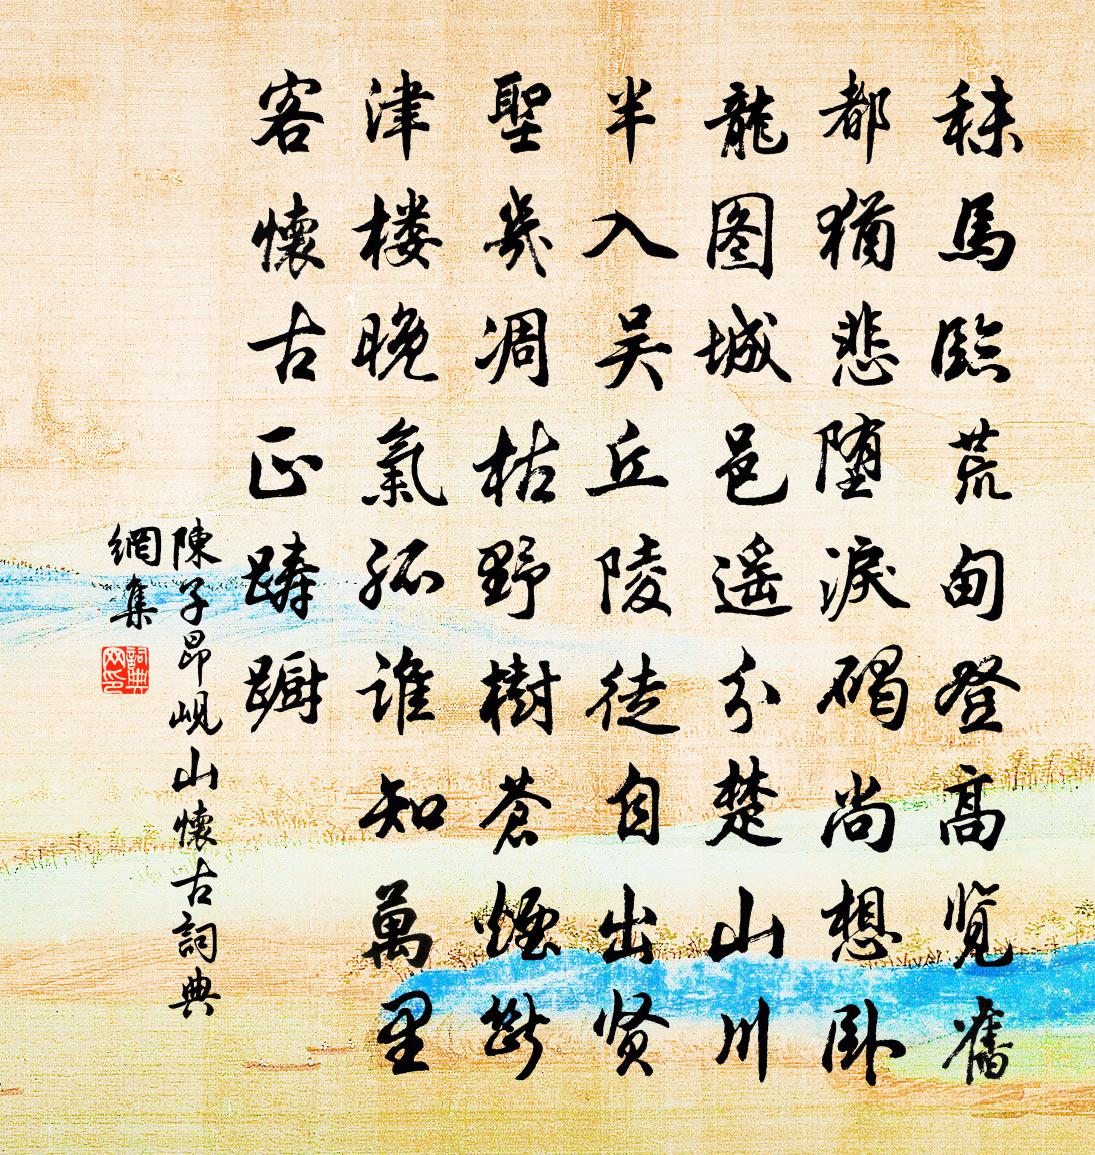 秣馬臨荒甸登高览舊
都猶悲堕淚碣尚想卧
龍图城邑遥分楚山川
半入吴丘陵徒自出贤
聖幾凋枯野樹蒼煙斷
津楼晚氣孤誰知萬里
客懷古正踌蹰
陳子昂岘山懷古詞典
網集
詞典
网印